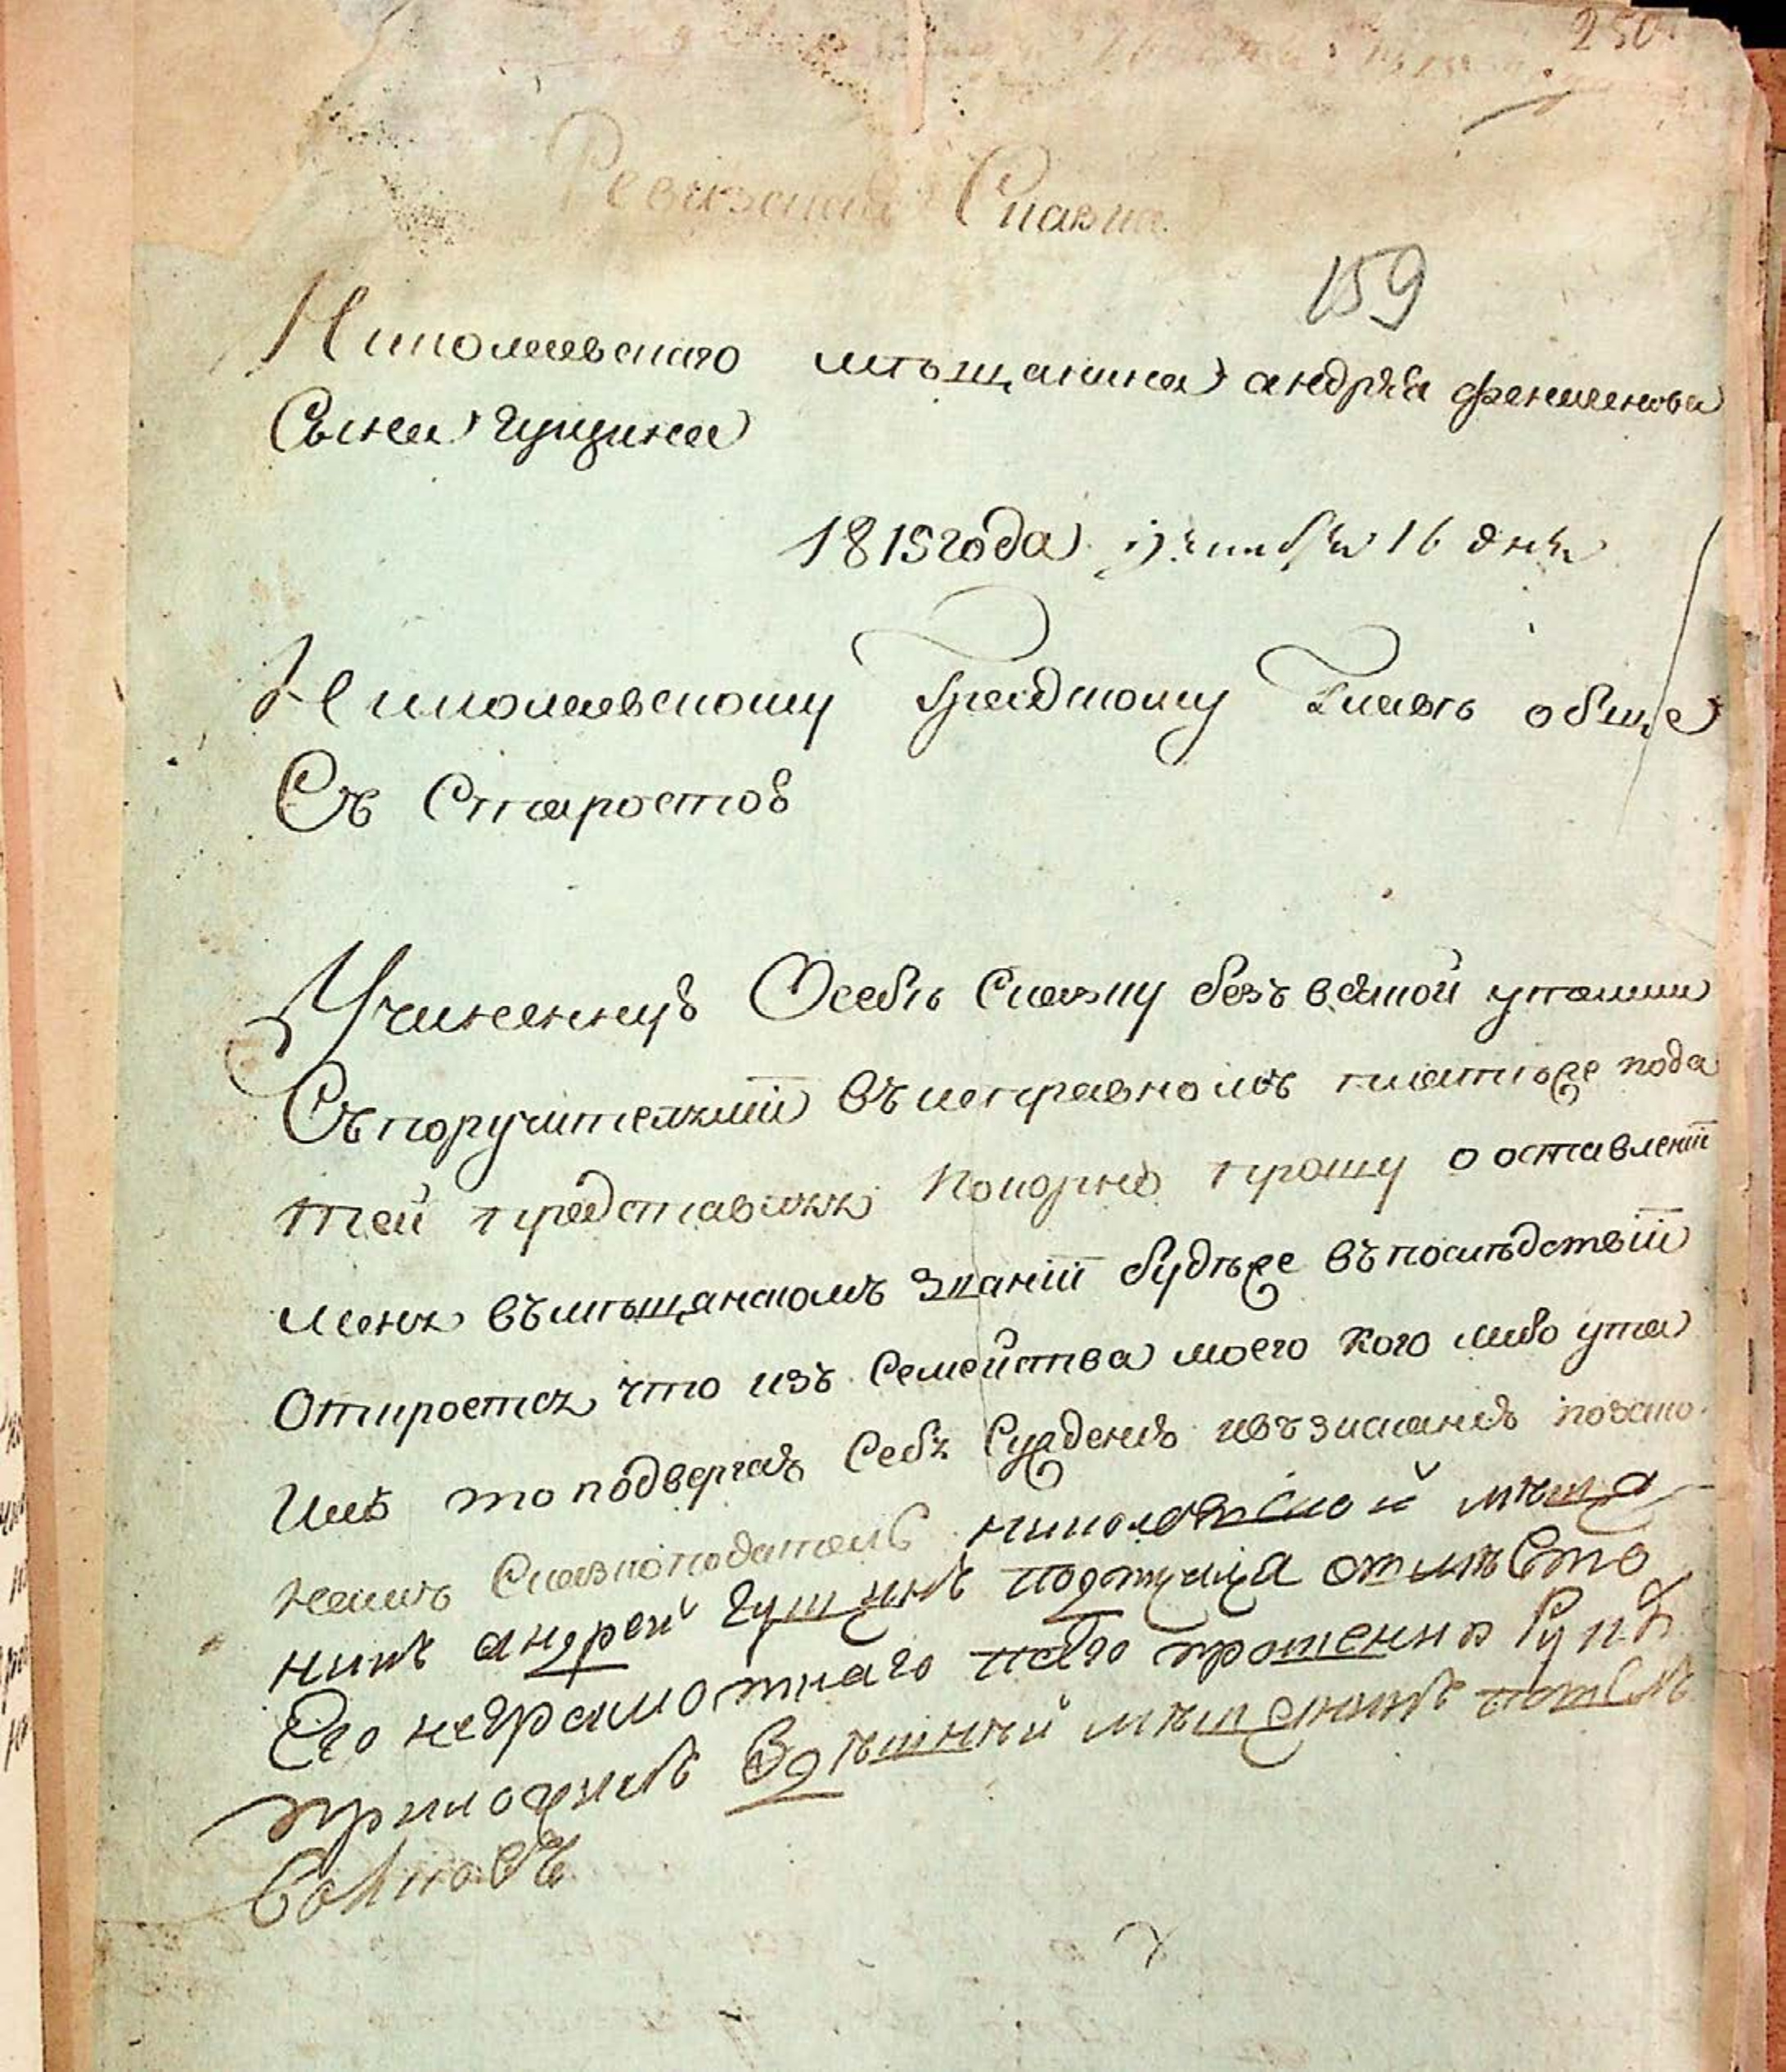 250
Ревизская Сказка
159
Николаевскаго мѣщанина андрѣя
Сына гущина
1815 года 16 дня
Николаевскому Градскому Главѣ обще
Съ Старостою
Учиненную Осебѣ Сказку безъ всякой утайки
Съпоручителями въисправномъ платѣже пода
тей представляя покорно прошу о оставленіи
меня въмѣщанскомъ званіи будѣже въпослѣдствіи
Откроется что изъ Семейства моего кого либо ута
илъ то подвергаю Себя Сужденію ивъзысканію позако
намъ Сказкоподатель николаевской мѣща
нинъ андрей гущинъ подписуюа вмѣсто
Его неграмотнаго поего прошению Руку
приложилъ Здѣшний мѣщанинъ